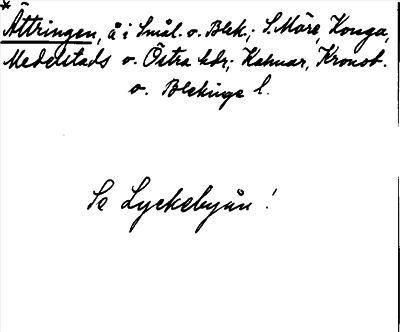 *Ättringen, å i Smål. o. Blek.; S. Möre, Konga,
Medelstads o. Östra hdr; Kalmar, Kronob.
o. Blekinge l.
Se Lyckebyån!